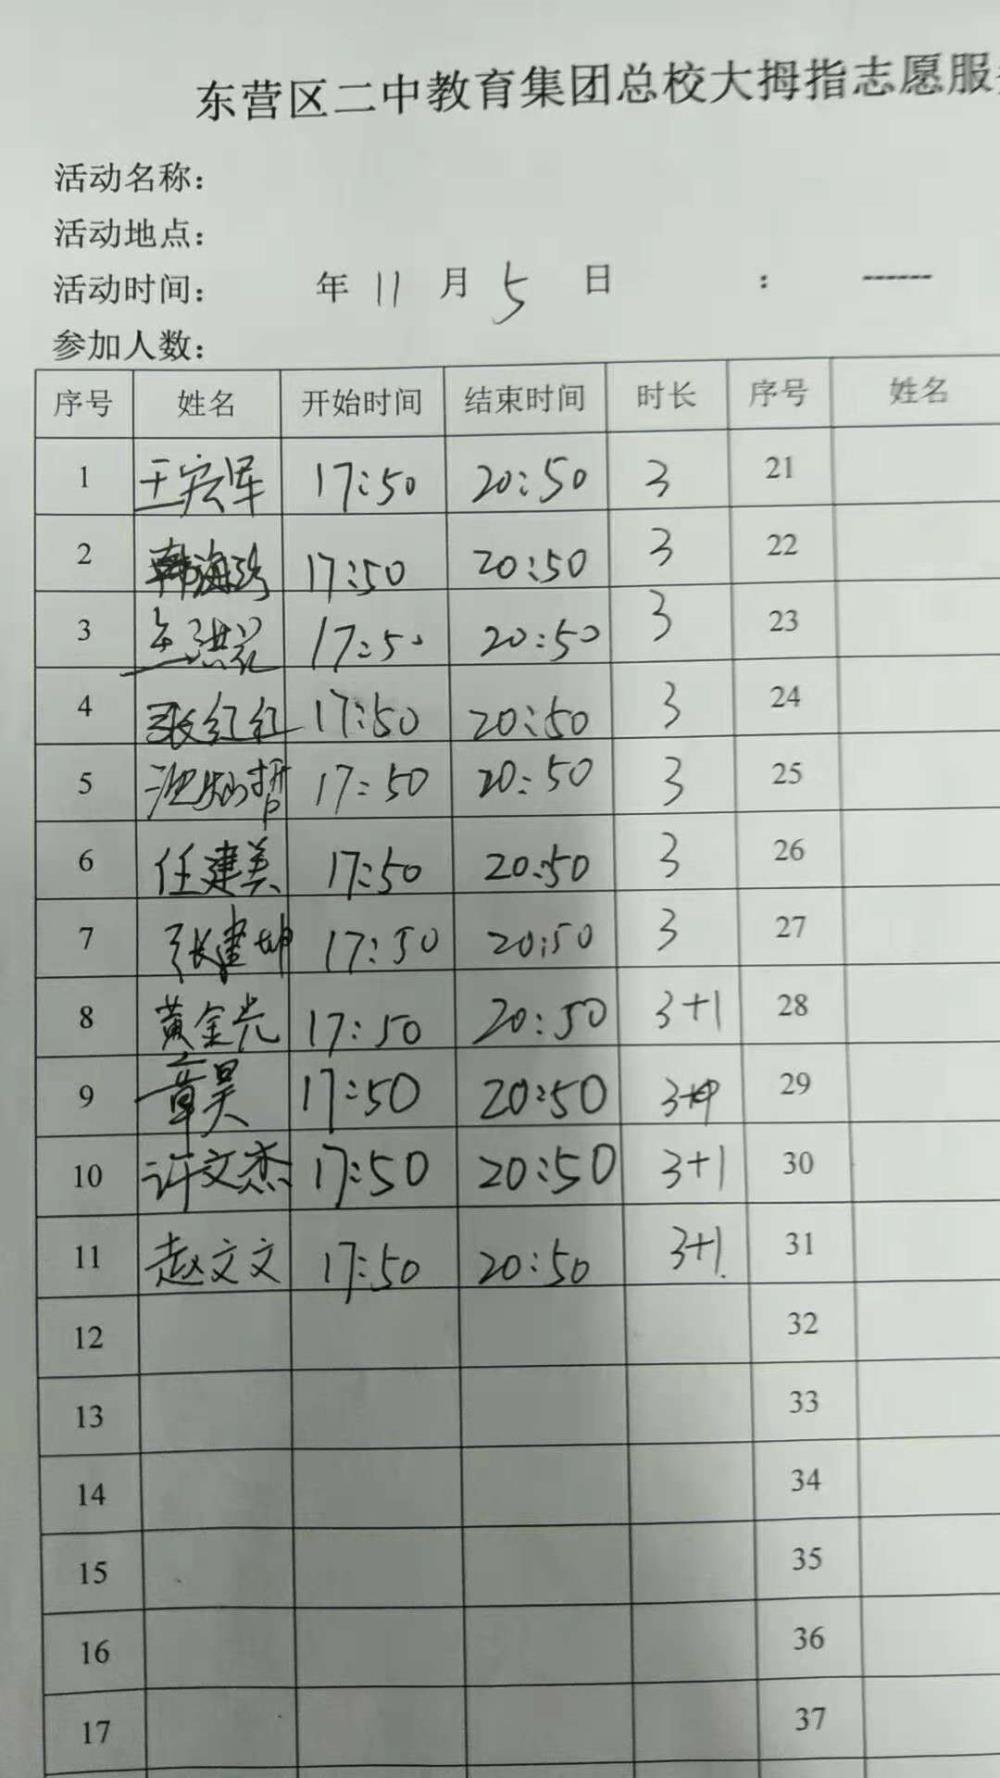 东营区二中教育集团总校大拇指志愿服
活动名称：
活动地点：
活动时间： 年 11 月 5 日 : ------
参加人数：
序号 姓名 开始时间 结束时间 时长 序号 姓名
1 王宏军 17:50 20:50 3 21
2 韩海 17:50 20:50 3 22
3 洪 17:50 20:50 3 23
4 张红红 17:50 20:50 3 24
5 哲 17:50 20:50 3 25
6 任建美 17:50 20:50 3 26
7 张建坤 17:50 20:50 3 27
8 黄金光 17:50 20:50 3+1 28
9 章昊 17:50 20:50 3+ 29
10 许文杰 17:50 20:50 3+1 30
11 赵文文 17:50 20:50 3+1. 31
12 32
13 33
14 34
15 35
16 36
17 37